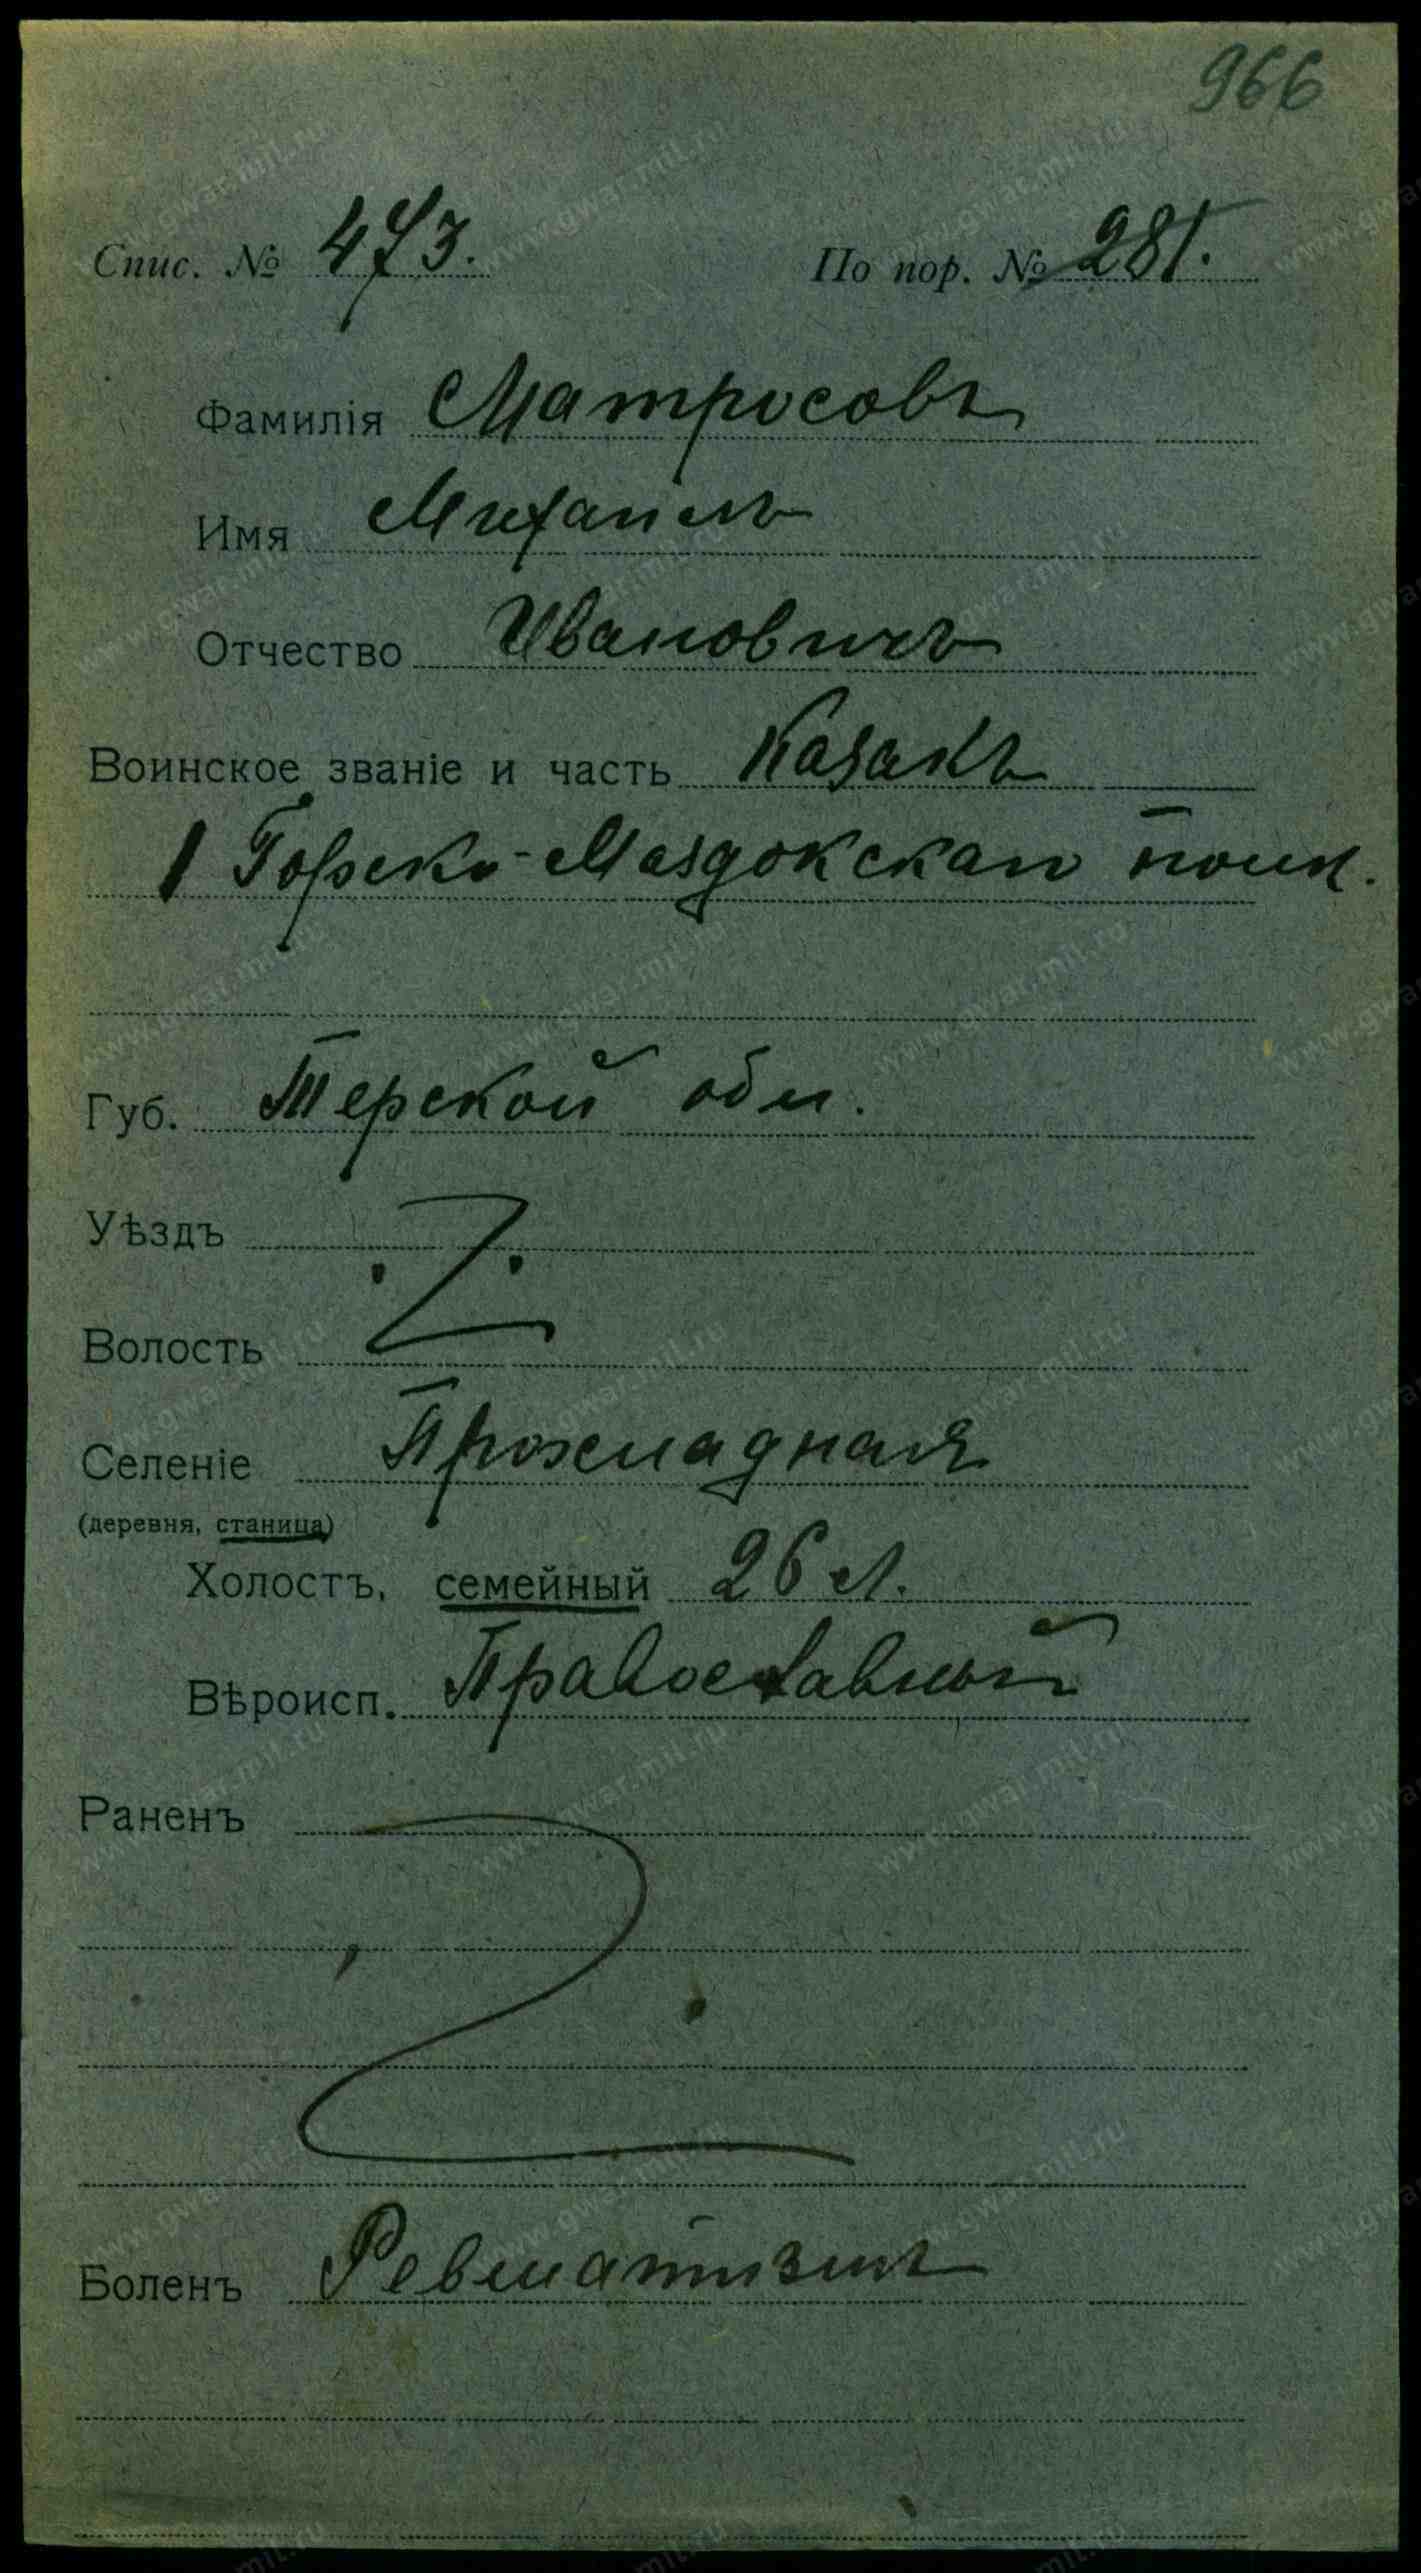 966
Спис. № 473. По пор. № 281.
Фамилія Матросовъ
Имя Михаилъ
Отчество Ивановичъ
Воинское званіе и часть Казакъ
1 Горско-Маздокскаго полк.
Губ. Терской обл.
Уѣздъ
Волость
Селеніе Прохладная
(деревня, станица)
Холостъ, семейный 26 л.
Вѣроисп. Православный
Раненъ
Боленъ Ревматизмъ
www.gwar.mil.ru